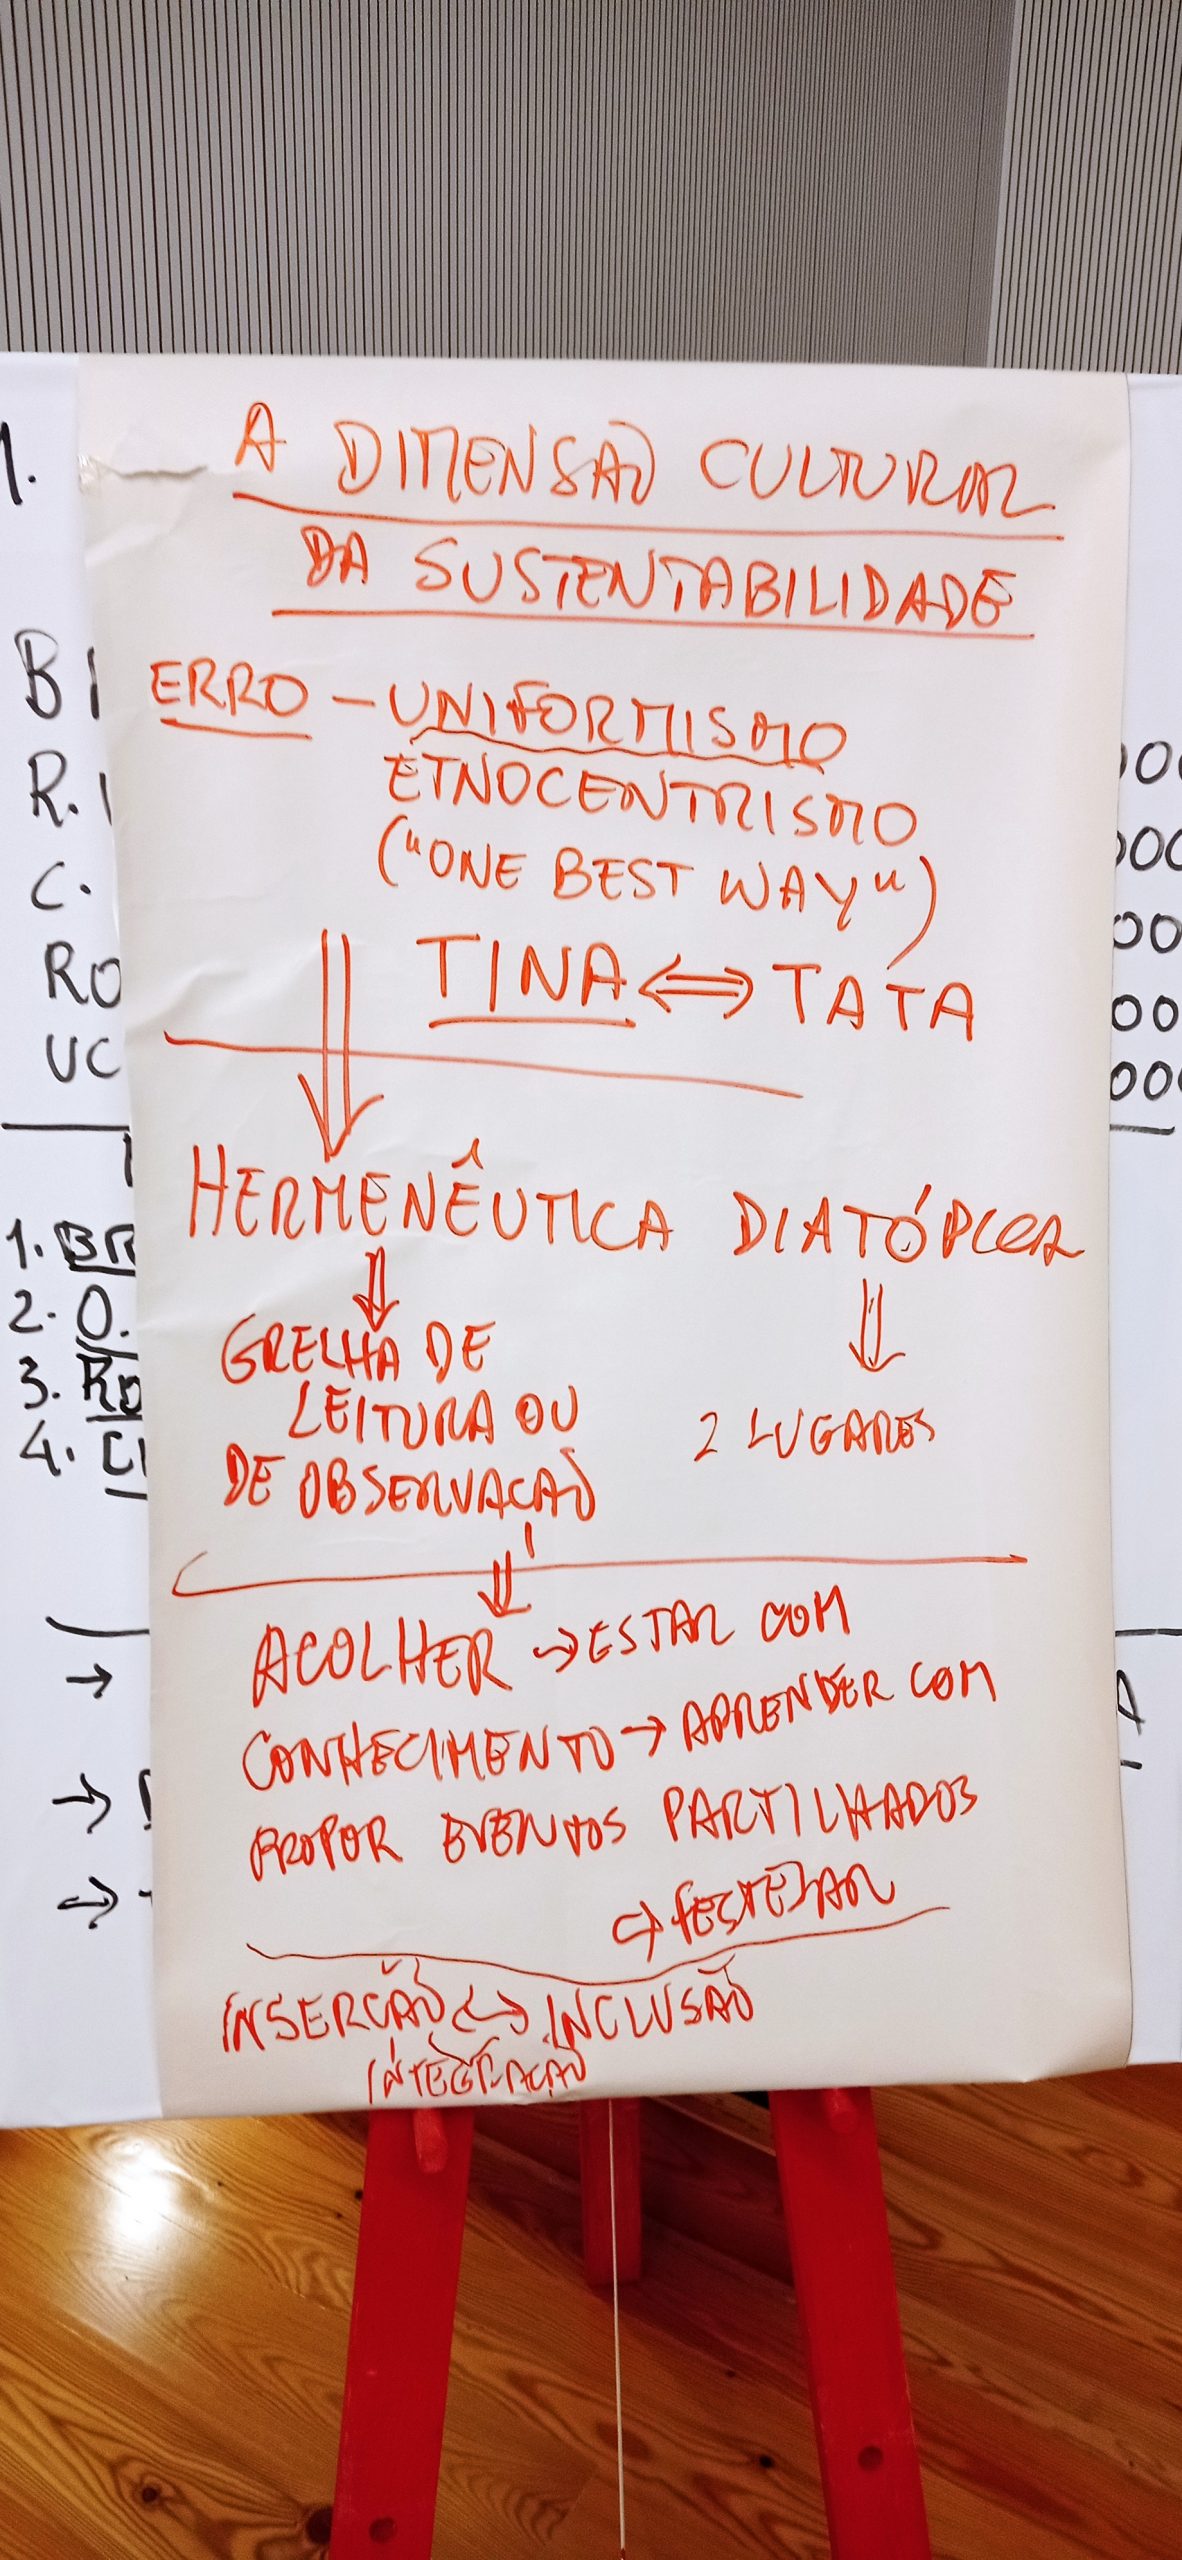 A DIMENSÃO CULTURAL
DA SUSTENTABILIDADE
ERRO – UNIFORMISMO
ETNOCENTRISMO
("ONE BEST WAY")
TINA ⇔ TATA
HERMENÊUTICA DIATÓPICA
⇓ ⇓
GRELHA DE
LEITURA OU
DE OBSERVAÇÃO
2 LUGARES
ACOLHER → ESTAR COM
CONHECIMENTO → APRENDER COM
PROPOR EVENTOS PARTILHADOS
↪ FESTEJAR
INSERÇÃO ↔ INCLUSÃO
INTEGRAÇÃO
1.
B
R.
C.
RO
UC
1. BR
2. O.
3. Ro
4. CI